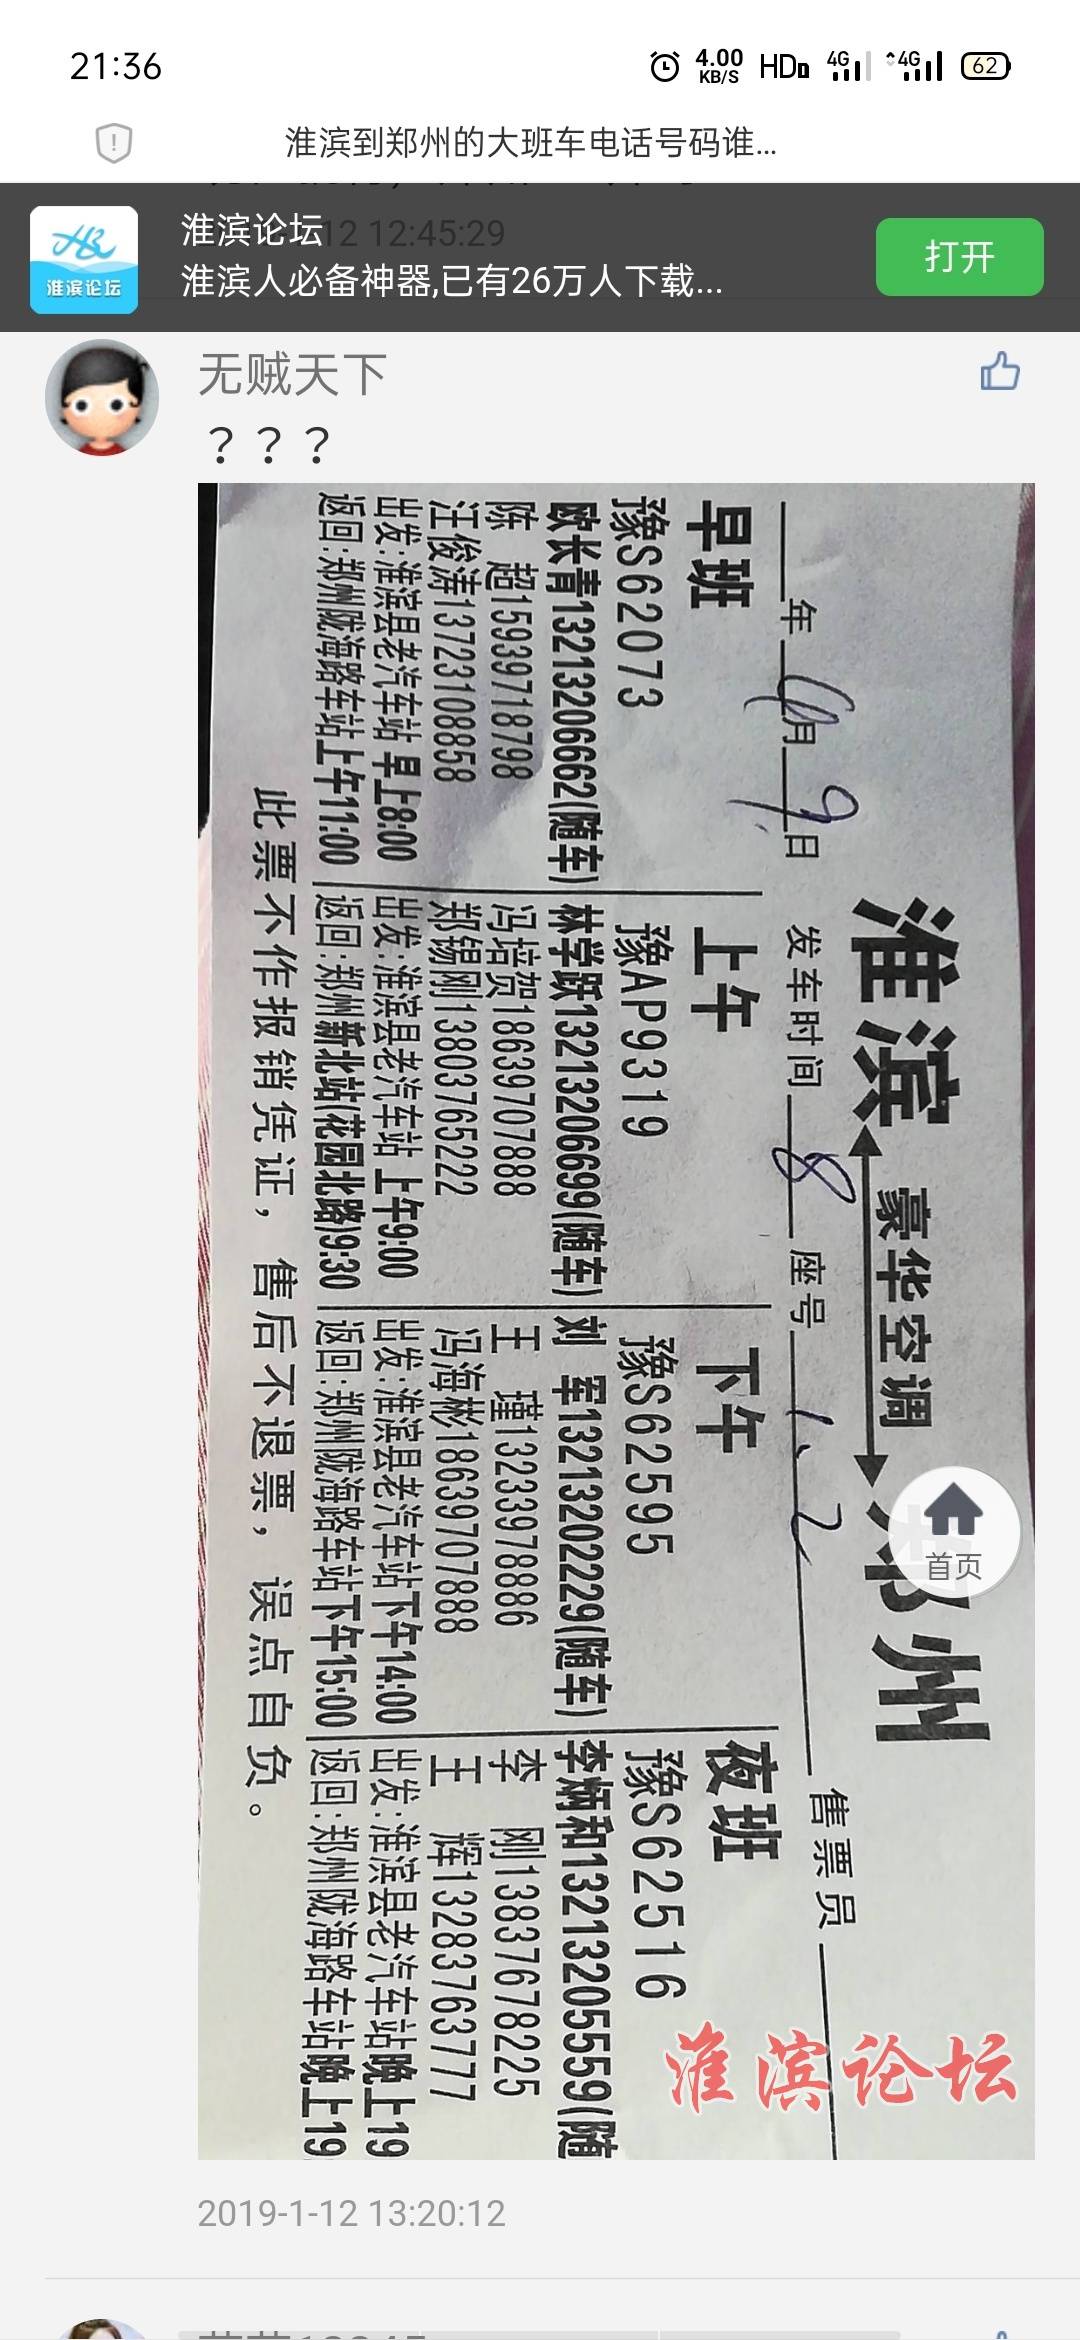 21:36
4.00
KB/S
HD
4G
4G
62
淮滨到郑州的大班车电话号码谁...
12 12:45:29
淮滨论坛
淮滨论坛
淮滨人必备神器,已有26万人下载...
打开
无贼天下
???
淮滨 豪华空调 郑州
年 月 9 日 发车时间 8 座号 1、2 售票员
早班
豫S62073
欧长青13213206662(随车)
陈 超15939718798
汪俊涛13723108858
出发:淮滨县老汽车站 早上8:00
返回:郑州陇海路车站上午11:00
上午
豫AP9319
林学跃13213206699(随车)
冯培贺18639707888
郑锡刚13803765222
出发:淮滨县老汽车站 上午9:00
返回:郑州新北站(花园北路)9:30
下午
豫S62595
刘 军13213202229(随车)
王 瑾13233978886
冯海彬18639707888
出发:淮滨县老汽车站下午14:00
返回:郑州陇海路车站下午15:00
夜班
豫S62516
李炳和13213205559(随
李 刚13837678225
王 辉13283763777
出发:淮滨县老汽车站晚上19
返回:郑州陇海路车站晚上19
此票不作报销凭证，售后不退票，误点自负。
首页
淮滨论坛
2019-1-12 13:20:12